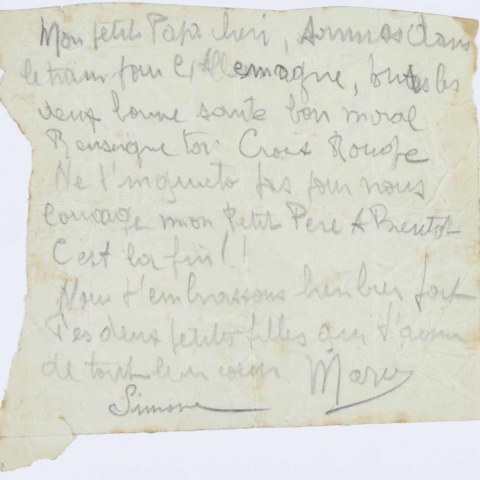 Mon petit Papa cheri, sommes dans
le train pour l'Allemagne, toutes les
deux bonne santé bon moral
Renseigne toi Croix Rouge
Ne t'inquiete pas pour nous
courage mon Petit Pere A Bientot
C'est la fin!!
Nous t'embrassons bien bien fort
Tes deux petites filles qui t'aiment
de tout leur coeur Marie
Simone